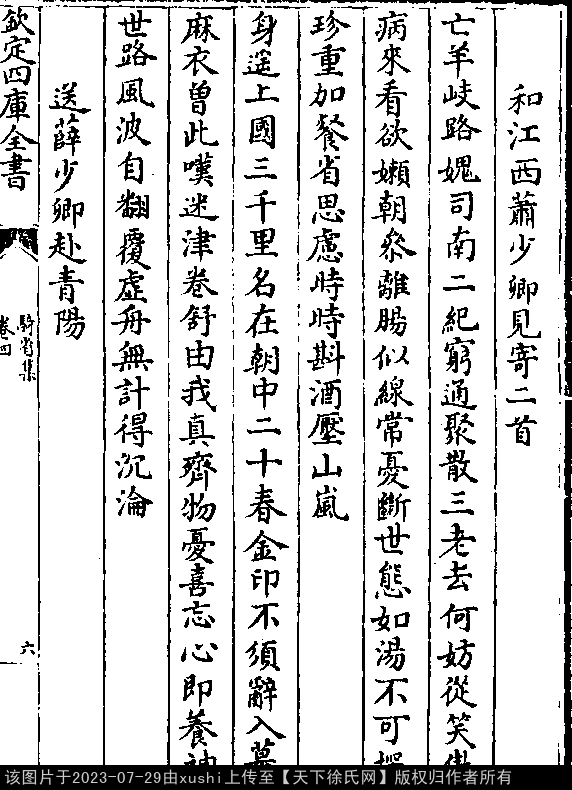 和江西蕭少卿見寄二首
亡羊岐路媿司南二紀窮通聚散三老去何妨從笑
病來看欲嬾朝叅離腸似線常憂斷世態如湯不可
珍重加餐省思慮時時斟酒壓山嵐
身遥上國三千里名在朝中二十春金印不須辭入
麻衣曽此嘆迷津卷舒由我真齊物憂喜忘心即養
世路風波自翻覆虛舟無計得沉淪
送薛少卿赴青陽
欽定四庫全書
騎省集
卷四
六
该图片于2023-07-29由xushi上传至【天下徐氏网】版权归作者所有